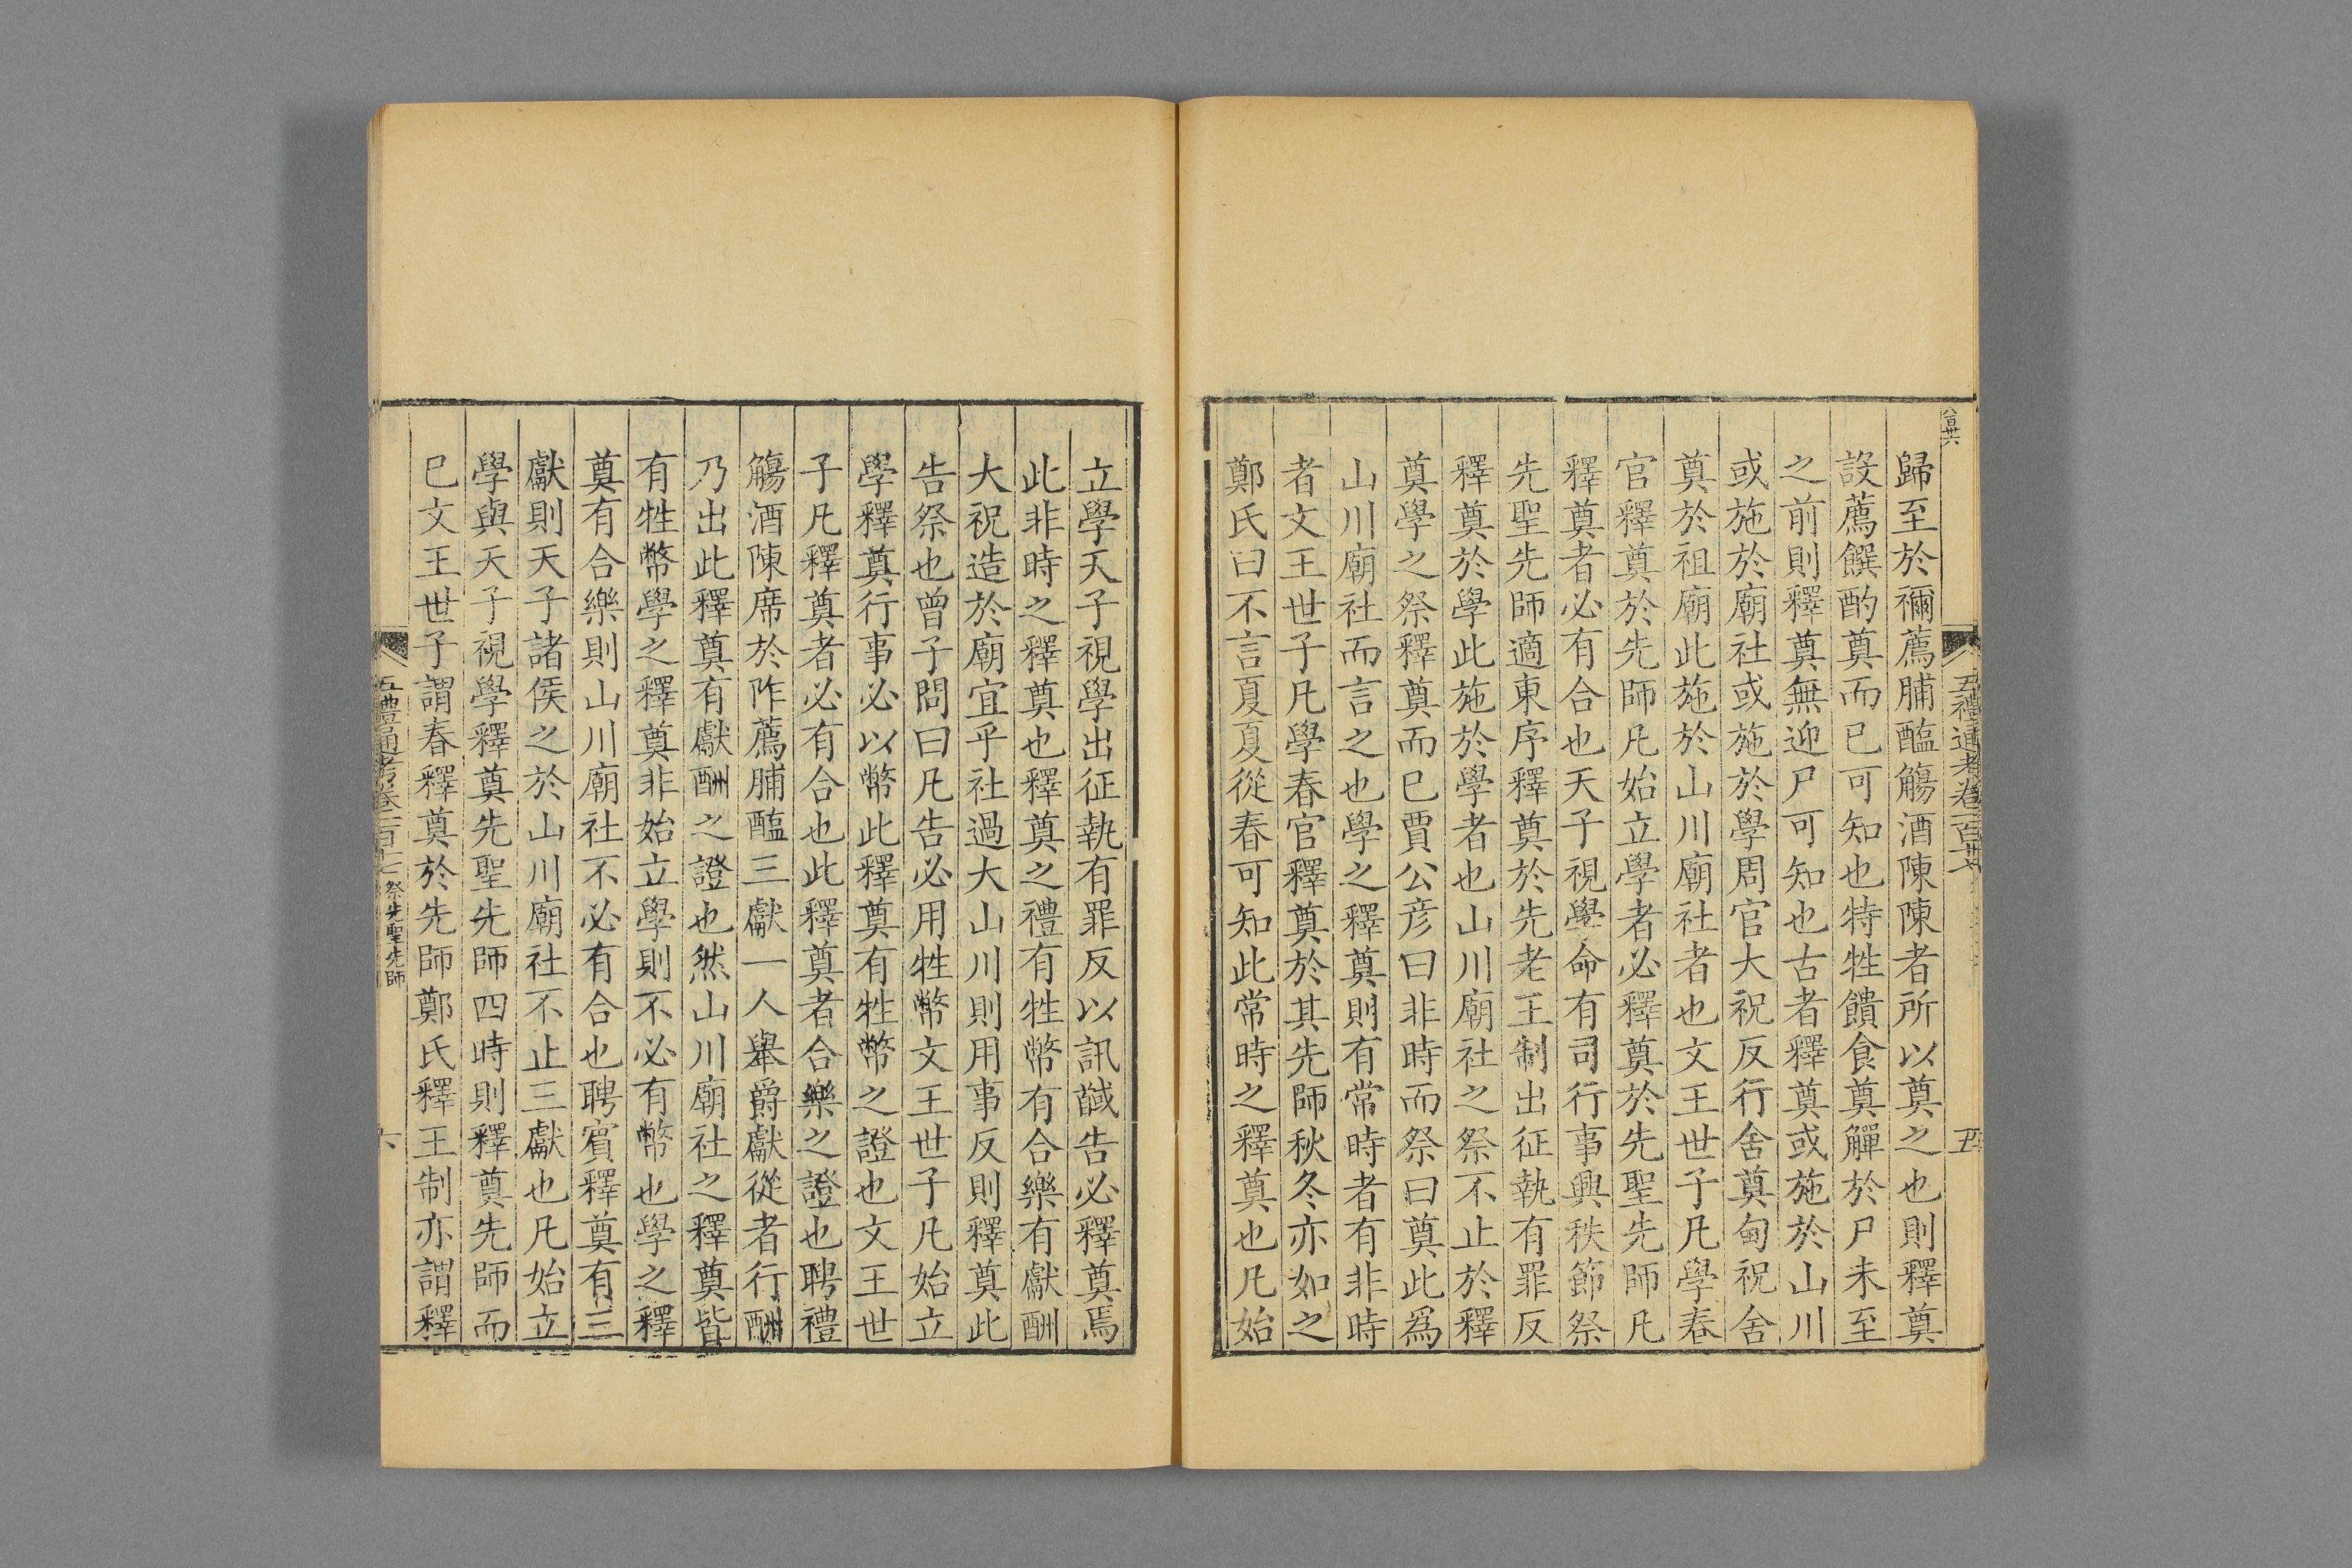 歸至於禰薦脯醢觴酒陳陳者所以奠之也則釋奠
設薦饌酌奠而已可知也特牲饋食奠觶於尸未至
之前則釋奠無迎尸可知也古者釋奠或施於山川
或施於廟社或施於學周官大祝反行舍奠甸祝舍
奠於祖廟此施於山川廟社者也文王世子凡學春
官釋奠於先師凡始立學者必釋奠於先聖先師凡
釋奠者必有合也天子視學命有司行事興秩節祭
先聖先師適東序釋奠於先老王制出征執有罪反
釋奠於學此施於學者也山川廟社之祭不止於釋
奠學之祭釋奠而已賈公彦曰非時而祭曰奠此爲
山川廟社而言之也學之釋奠則有常時者有非時
者文王世子凡學春官釋奠於其先師秋冬亦如之
鄭氏曰不言夏夏從春可知此常時之釋奠也凡始
立學天子視學出征執有罪反以訊馘告必釋奠焉
此非時之釋奠也釋奠之禮有牲幣有合樂有獻酬
大祝造於廟宜乎社過大山川則用事反則釋奠此
告祭也曾子問曰凡告必用牲幣文王世子凡始立
學釋奠行事必以幣此釋奠有牲幣之證也文王世
子凡釋奠者必有合也此釋奠者合樂之證也聘禮
觴酒陳席於阼薦脯醢三獻一人舉爵獻從者行酬
乃出此釋奠有獻酬之證也然山川廟社之釋奠皆
有牲幣學之釋奠非始立學則不必有幣也學之釋
奠有合樂則山川廟社不必有合也聘賓釋奠有三
獻則天子諸侯之於山川廟社不止三獻也凡始立
學與天子視學釋奠先聖先師四時則釋奠先師而
巳文王世子謂春釋奠於先師鄭氏釋王制亦謂釋
五禮通考卷一百十七 祭先聖先師
六